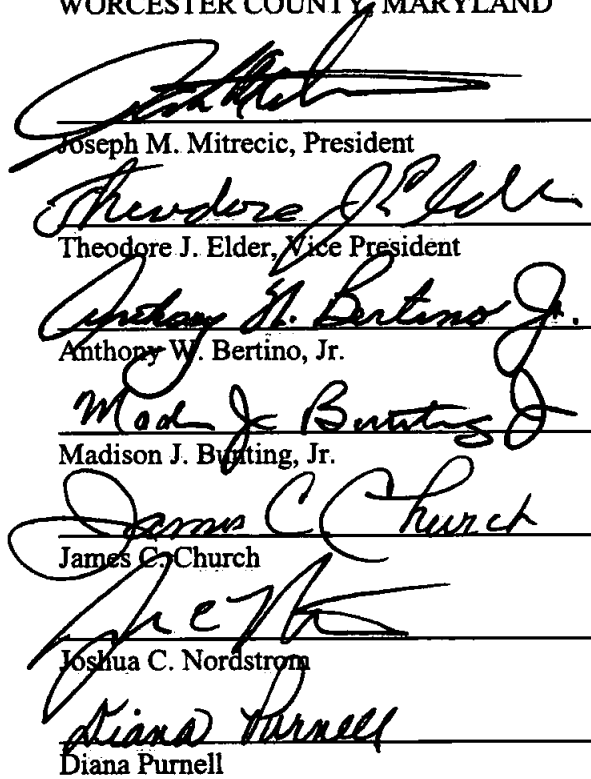 WORCESTER COUNTY, MARYLAND
Joseph M. Mitrecic, President
Theodore J. Elder
Theodore J. Elder, Vice President
Anthony W. Bertino Jr.
Anthony W. Bertino, Jr.
Madison J. Bunting, Jr.
James C Church
James C. Church
Joshua C. Nordstrom
Diana Purnell
Diana Purnell